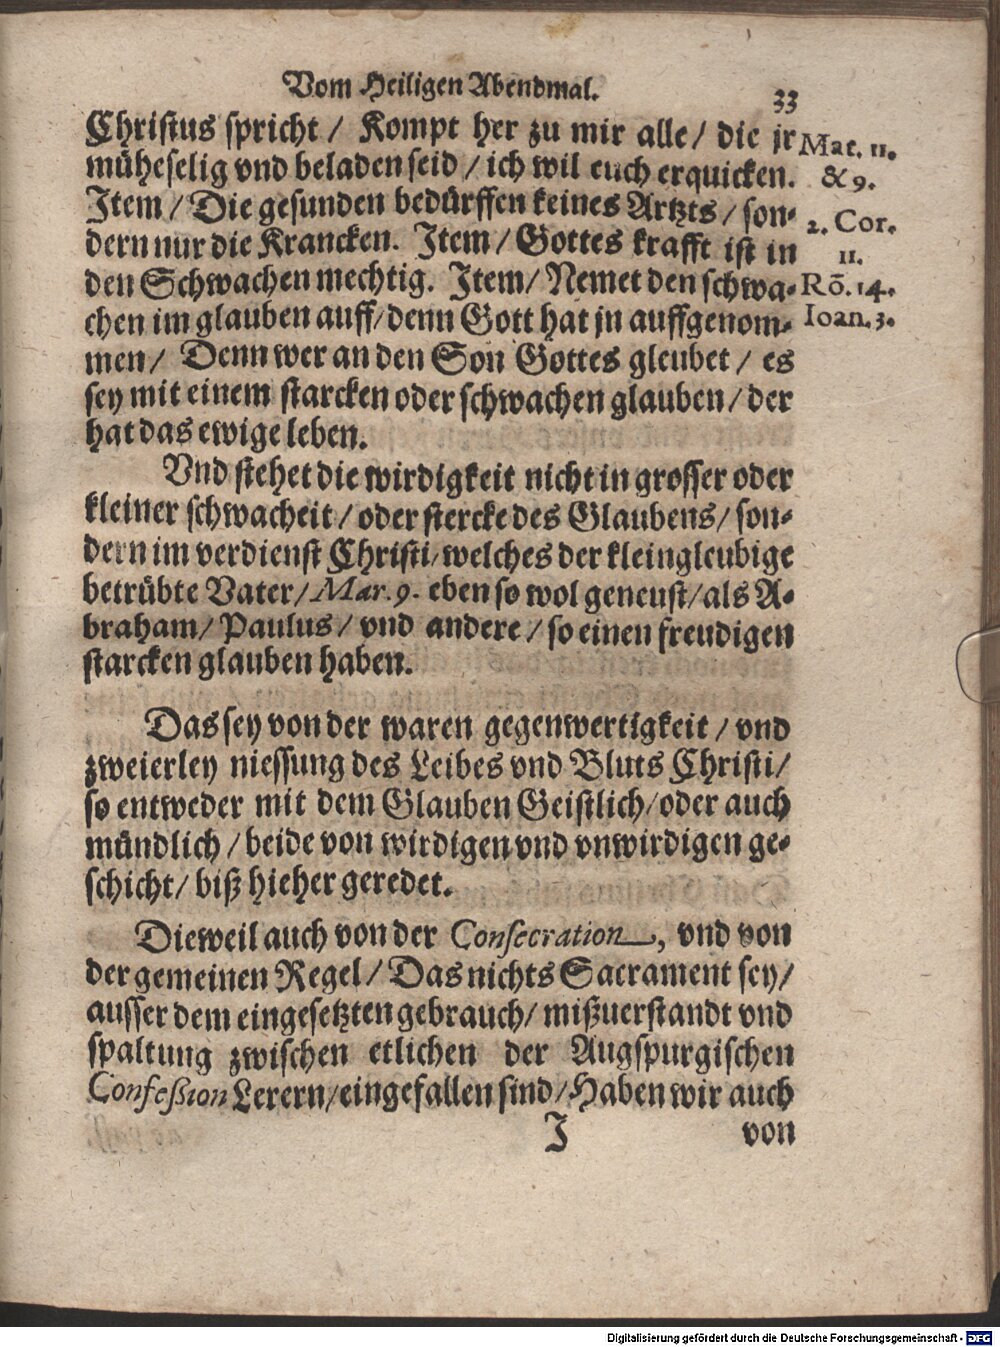 Vom Heiligen Abendmal.
33
Christus spricht / Kompt her zu mir alle / die jr
müheselig vnd beladen seid / ich wil euch erquicken.
Item / Die gesunden bedürffen keines Artzts / son-
dern nur die Krancken. Item / Gottes krafft ist in
den Schwachen mechtig. Item / Nemet den schwa-
chen im glauben auff / denn Gott hat jn auffgenom-
men / Denn wer an den Son Gottes gleubet / es
sey mit einem starcken oder schwachen glauben / der
hat das ewige leben.
Mat. 11.
& 9.
2. Cor.
11.
Rō. 14.
Ioan. 3.
Vnd stehet die wirdigkeit nicht in grosser oder
kleiner schwacheit / oder stercke des Glaubens / son-
dern im verdienst Christi / welches der kleingleubige
betrübte Vater / Mar. 9. eben so wol geneust / als A-
braham / Paulus / vnd andere / so einen freudigen
starcken glauben haben.
Das sey von der waren gegenwertigkeit / vnd
zweierley niessung des Leibes vnd Bluts Christi /
so entweder mit dem Glauben Geistlich / oder auch
mündlich / beide von wirdigen vnd vnwirdigen ge-
schicht / biß hieher geredet.
Dieweil auch von der Consecration, vnd von
der gemeinen Regel / Das nichts Sacrament sey /
ausser dem eingesetzten gebrauch / mißuerstandt vnd
spaltung zwischen etlichen der Augspurgischen
Confeßion Lerern / eingefallen sind / Haben wir auch
J
von
Digitalisierung gefördert durch die Deutsche Forschungsgemeinschaft - DFG